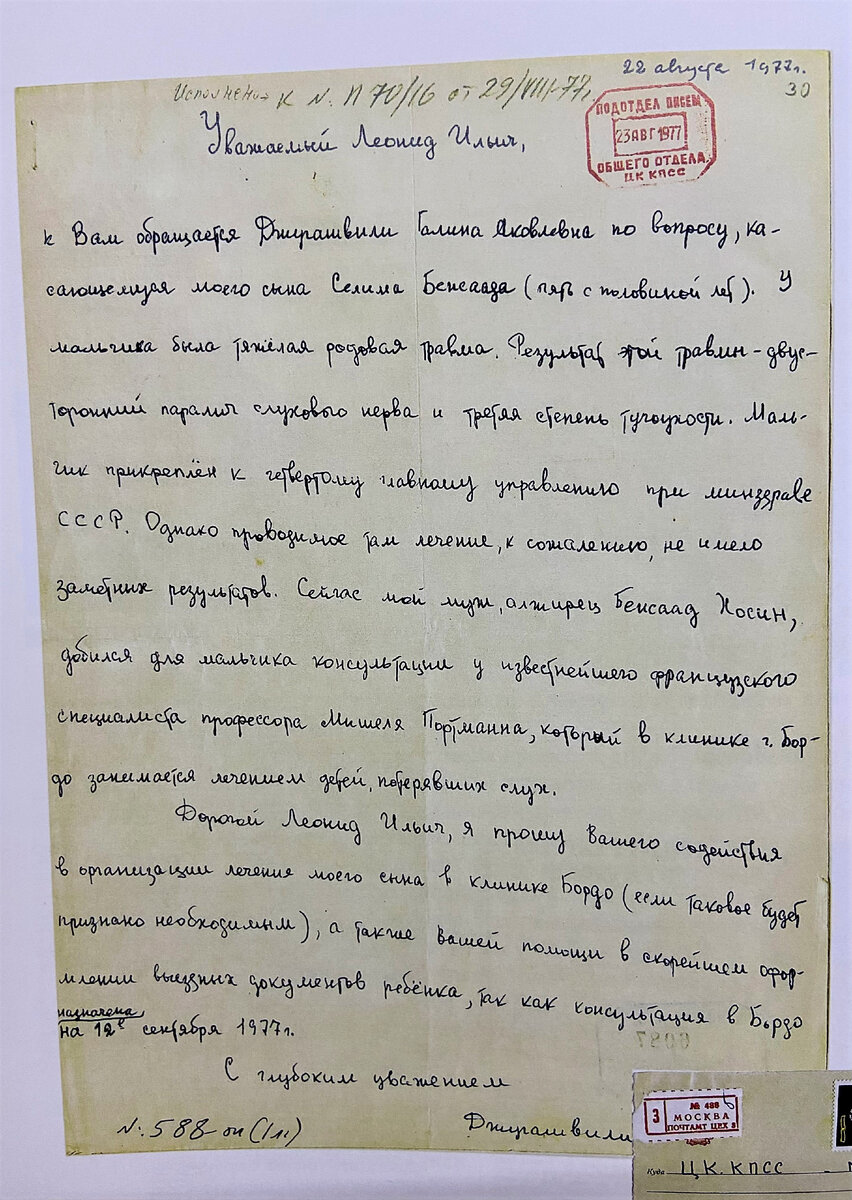 22 августа 1977г.
30
к N. П 70/16 от 29/VIII-77г.
ПОДОТДЕЛ ПИСЕМ
23 АВГ 1977
ОБЩЕГО ОТДЕЛА
ЦК КПСС
Уважаемый Леонид Ильич,
к Вам обращается Джугашвили Галина Яковлевна по вопросу, ка-
сающемуся моего сына Селима Бенсаада (пять с половиной лет). У
мальчика была тяжёлая родовая травма. Результат этой травмы - двус-
торонний паралич слухового нерва и третья степень тугоухости. Маль-
чик прикреплён к четвертому главному управлению при минздраве
СССР. Однако проводимое там лечение, к сожалению, не имело
заметных результатов. Сейчас мой муж, алжирец Бенсаад Хосин,
добился для мальчика консультации у известнейшего французского
специалиста профессора Мишеля Портманна, который в клинике г. Бор-
до занимается лечением детей, потерявших слух.
Дорогой Леонид Ильич, я прошу Вашего содействия
в организации лечения моего сына в клинике Бордо (если таковое будет
признано необходимым), а также Вашей помощи в скорейшем офор-
млении выездных документов ребёнка, так как консультация в Бордо
назначена
на 12е сентября 1977г.
С глубоким уважением
N. 588-оп (1л)
Джугашвили
3
№ 488
МОСКВА
ПОЧТАМТ ЦЕХ 3
Куда ЦК. КПСС